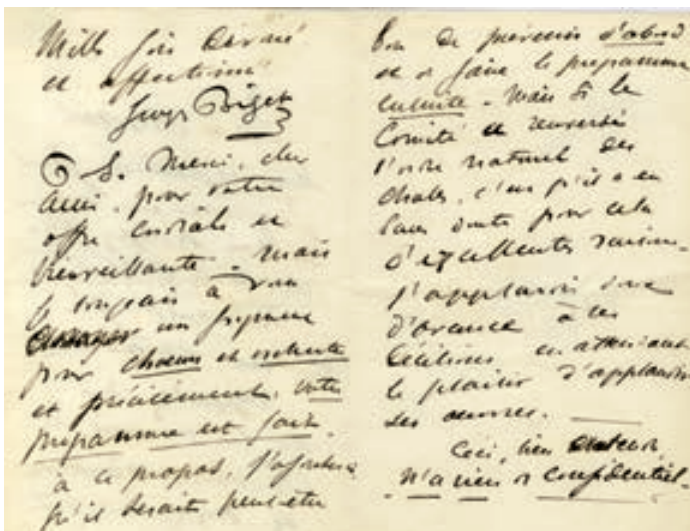 Mille fois dévoué
et affectionné
Georges Bizet
P. S. Merci, cher
ami, pour votre
offre cordiale et
bienveillante. Mais
je songeais à vous
un fragment
pour chœurs et orchestre
et précisément, votre
programme est fait.
à ce propos, j'ajouterai
qu'il serait peut-être
bon de prévenir d'abord
et de faire le programme
ensuite. Mais si le
Comité a renversé
l'ordre naturel des
choses, c'est qu'il a eu
sans doute pour cela
d'excellentes raisons.
J'applaudis donc
d'avance à ses
décisions en attendant
le plaisir d'applaudir
ses œuvres.
Ceci, bien entendu,
n'a rien de confidentiel.